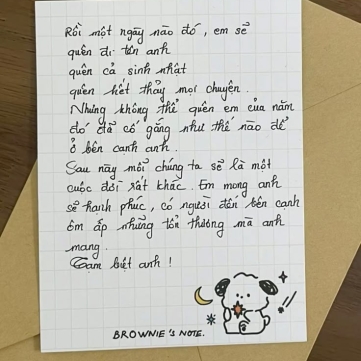 Rồi một ngày nào đó, em sẽ
quên đi tên anh
quên cả sinh nhật
quên hết thảy mọi chuyện.
Nhưng không thể quên em của năm
đó đã cố gắng như thế nào để
ở bên cạnh anh.
Sau này mỗi chúng ta sẽ là một
cuộc đời rất khác. Em mong anh
sẽ hạnh phúc, có người đến bên cạnh
ôm ấp những tổn thương mà anh
mang.
Tạm biệt anh !
BROWNIE'S NOTE.